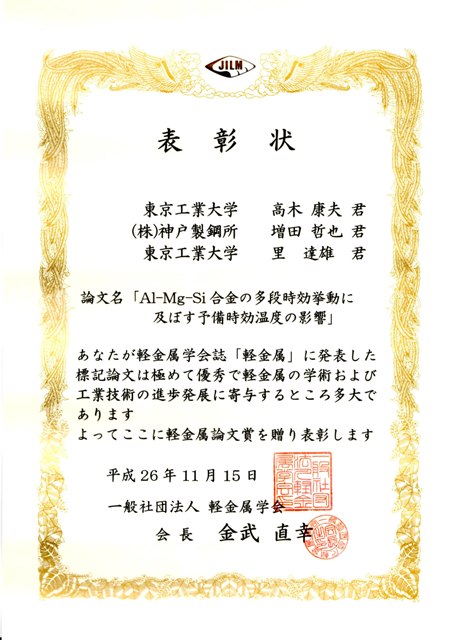 JILM
表彰状
東京工業大学 高木 康夫 君
(株)神戸製鋼所 増田 哲也 君
東京工業大学 里 達雄 君
論文名「Al-Mg-Si合金の多段時効挙動に
及ぼす予備時効温度の影響」
あなたが軽金属学会誌「軽金属」に発表した
標記論文は極めて優秀で軽金属の学術および
工業技術の進歩発展に寄与するところ多大で
あります
よってここに軽金属論文賞を贈り表彰します
平成26年11月15日
一般社団法人 軽金属学会
会長 金武 直幸